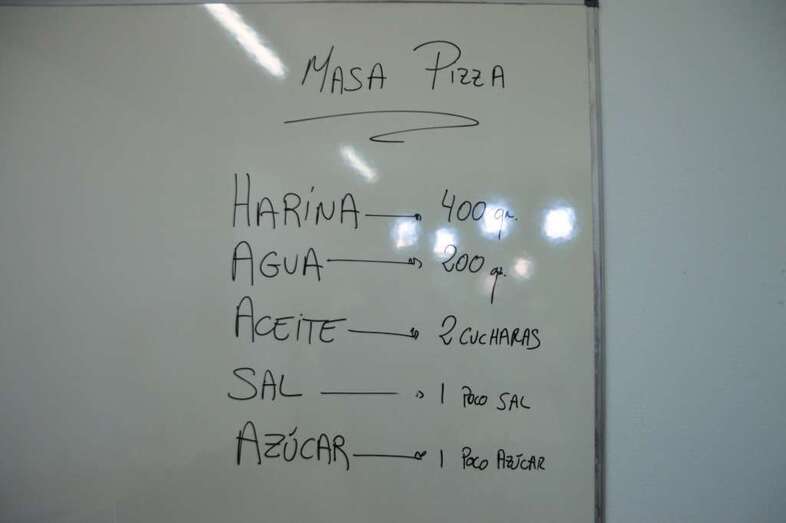 MASA PIZZA
HARINA → 400 gr.
AGUA → 200 gr.
ACEITE → 2 CUCHARAS
SAL → 1 POCO SAL
AZÚCAR → 1 POCO AZÚCAR